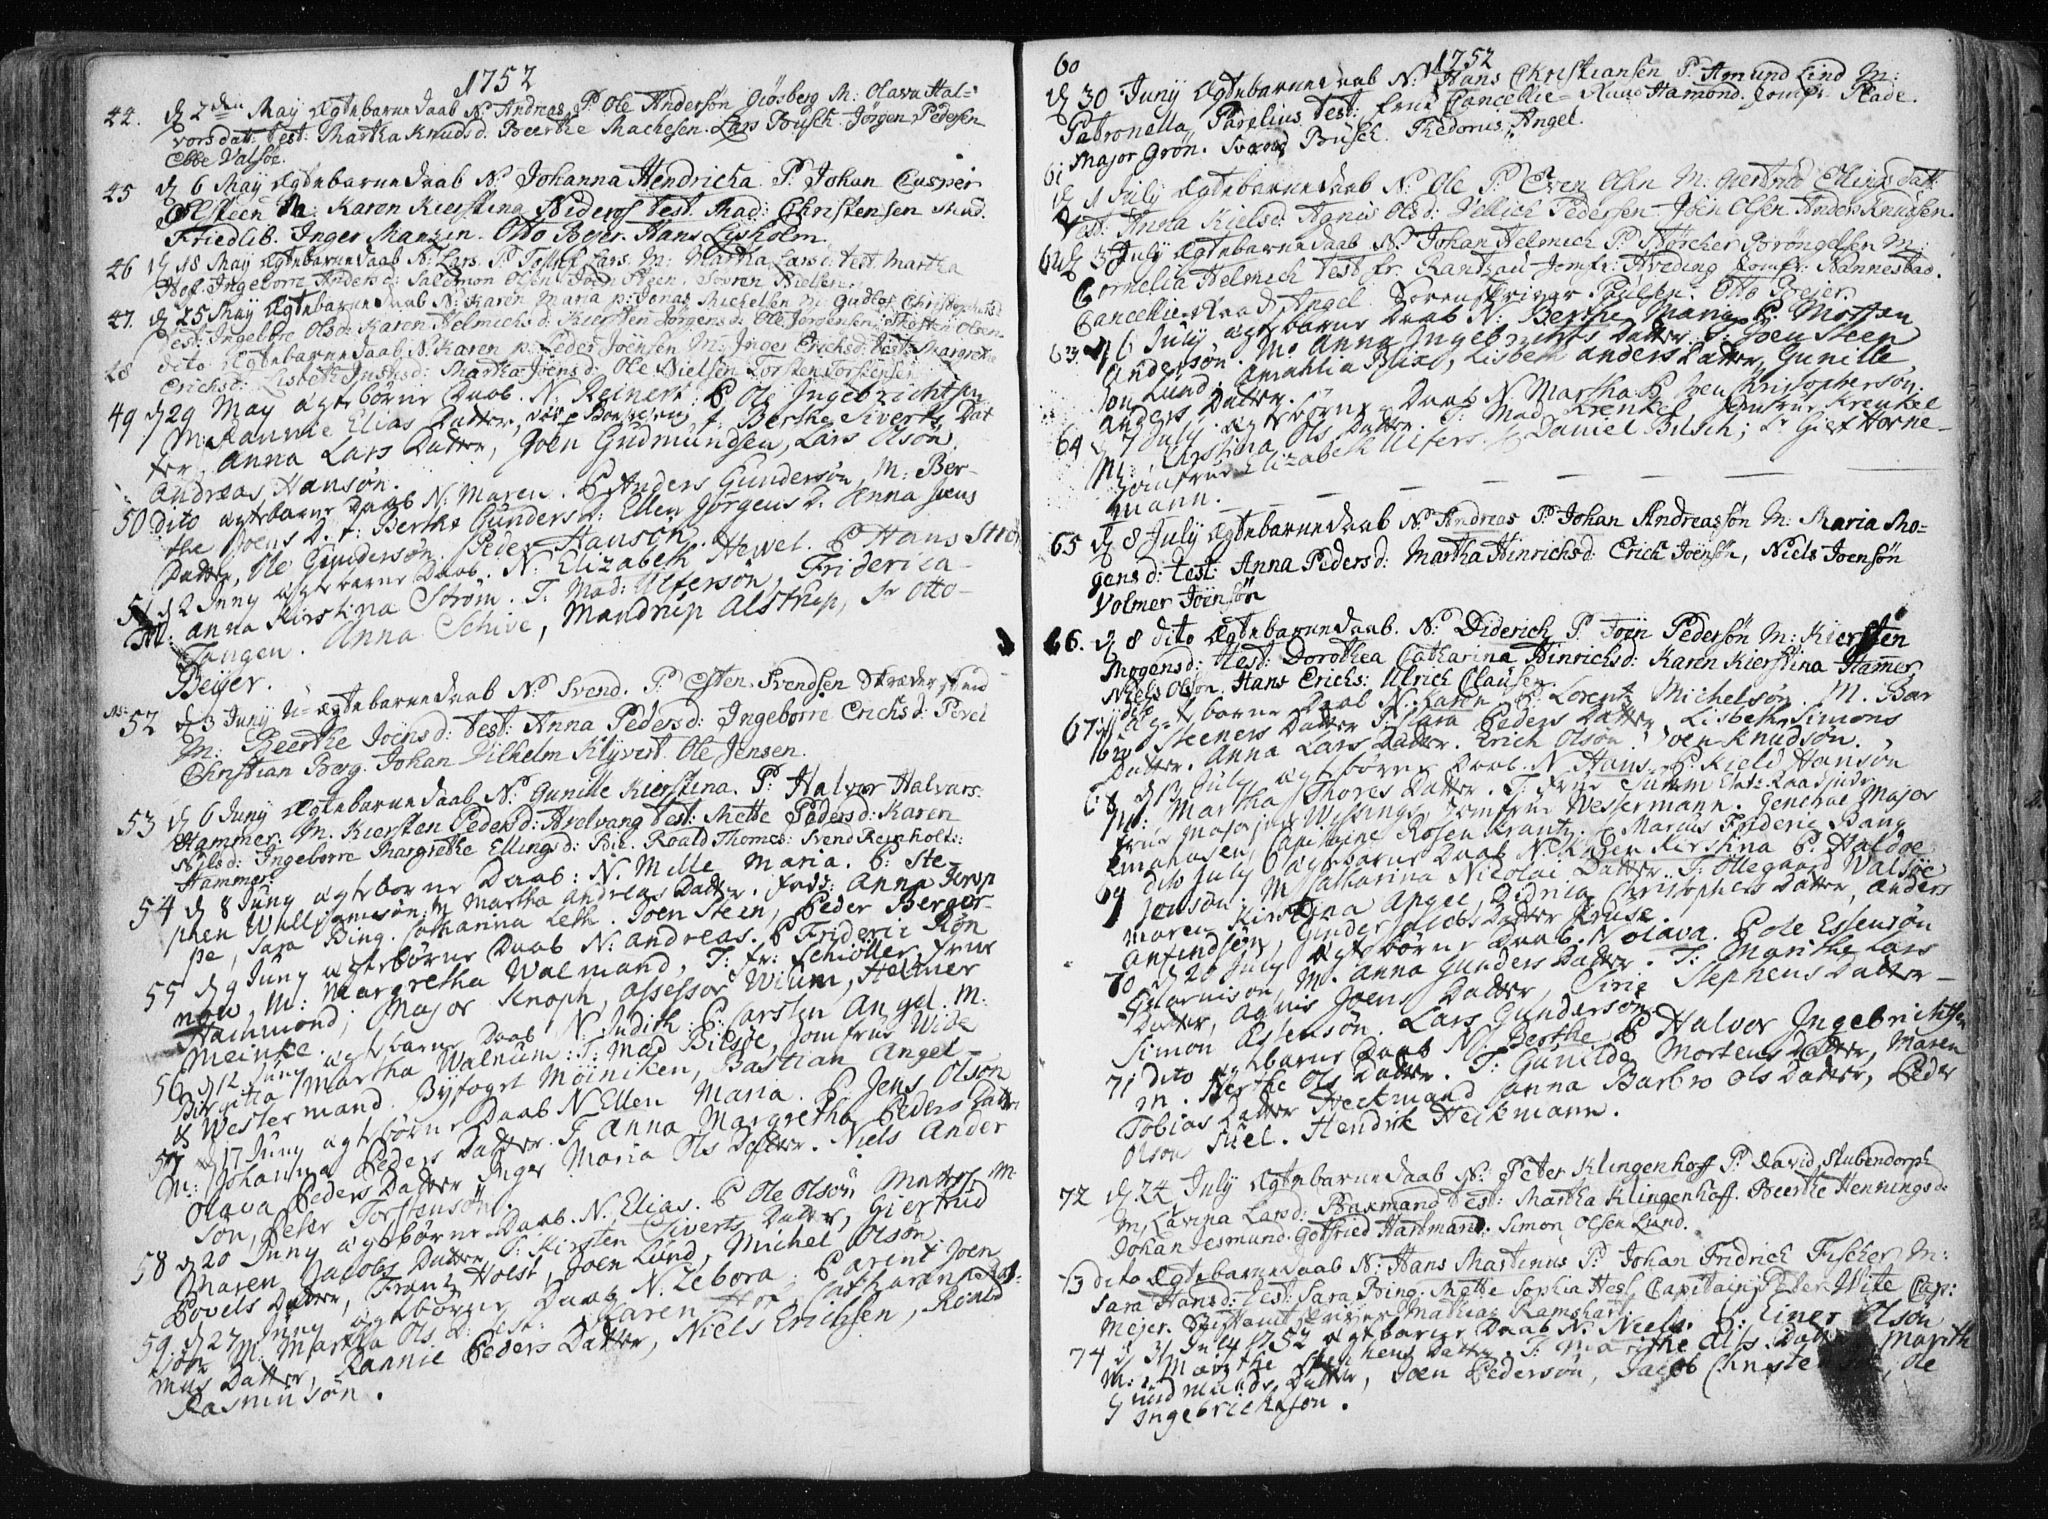 1752
44. d 2den May Ægtebarne daab N: Andreas P: Ole Andersøn Giøsberg M: Olava Hal-
vors dat: Test: Martha Knuds d. Beerthe Machesen. Lars Busch. Jørgen Pedersen
Ebbe Valsøe.
45 d 6 May Ægtebarne daab N: Johanna Hendricha P: Johan Casper
Olsteen M: Karen Kierstina Nideros Test. Mad: Christensen Mad.
Friedlib. Inger Manzin. Otto Bejer. Hans Lysholm.
46 d 18 May Ægtebarne daab N: Lars. P: Lars. M: Martha Lars d: test. Martha
Hof Ingeborre Anders d: Salomon Olsen Joen Steen. Søvren Nielsen.
47. d 25 May Ægtebarne daab N: Karen Maria p: Jonas Michelsen M: Gudlof Christophersd
Test: Ingebore Ols d: Karen Helmichs d: Kiersten Jørgens d: Ole Jørgensen Thosten Olsen
48 dito Ægtebarne daab N: Karen p: Peder Joensen M: Inger Erichs d: test: Margrethe
Erichs d: Lisbeth Joens d: Martha Joens d: Ole Nielsen Torsten Torstensen
49 d 29 May ægtebørne Daab. N. Reinert. P Ole Ingebrichtsen
M: Rannie Elias Datter, T. Berthe Siverts Dat
ter, Anna Lars Datter, Joen Gudmundsen, Lars Olsøn,
Andreas Hansøn.
50 dito ægtebarne Daab N: Maren. P Anders Gundersøn, M: Ber-
the Joens D. t: Berthe Gunders d: Ellen Jørgens D. Anna Joens
Datter, Ole Gundersøn. Peder Hansøn.
51 d 2 Juny ægtebarne Daab. N: Elizabeth Hevel. P Hans
M: Anna Kirstina Strøm. T. Mad: Ulfersøn, Friderica
Tangen. Anna Schive, Mandrup Alstrup, Sr Otto
Beyer.
52 d 3 Juny U-ægtebarne daab N: Svend. P: Esten Svendsen Skræder
M: Beerthe Joens d: Test: Anna Peders d: Ingeborre Erichs d: Povel
Christian Berg. Johan Vilhelm Klyvert. Ole Jensen.
53 d 6 Juny Ægtebarne daab N: Gunille Kierstina. P: Halvor Halvars:
Hammer. M. Kiersten Peders d: Arelvang test: Mette Peders d: Karen
Nils d: Ingeborre Margrethe Ellings d: Roald Thomes: Svend Reinholt:
Hammer.
54 d 8 Juny ægtebørne Daab: N. Mille Maria. P: Ste-
phen Willjamsøn: M Martha Andreas Datter. Test: Anna Jesop
pe, Sara Bing. Cathanina Leth. Joen Steen, Peder Berger-
55 d 9 Juny ægtebørne Daab N: Andreas. P Frideric Røn
now, M: Margretha Walmand, T: fr: Schiøller, frue
Hammond, Major Senoph, Assessor Wium, Helmer
Meinke.
56 d 12 Juny ægtebarne Daab N: Judith. P. Carsten Angel. M:
Birgitta Martha Walnum: T: Mad Bilsøe, Jomfrue Wide
& Westermand. Byfoget Møiniken, Bastian Angel
57 d 17 Juny ægtebørne Daab N. Ellen Maria. P Jens Olsøn
M: Johanna Peders Datter. T Anna Margretha Peders Datter
Olava Peders Datter Inger Maria Ols Datter. Niels Ander
søn, Peter Torstensøn.
58 d 20 Juny ægtebørne Daab. N. Elias. P Ole Olsøn Matros, M
Maren Jacobs Datter, T: Kirsten Siverts Datter, Giertrud
Povels Datter, Frans Holst, Joen Lund, Michel Olsøn.
59. d 27 Juny ægtebørne Daab N. Zebora. Parent Joen
søn M. Martha Ols d: test: Karen Catharina Ras-
mus Datter, Rannie Peders Datter, Niels Erichsen, Roald
Rasmusøn.
1752
60
d 30 Juny Ægtebarne daab N: Hans Christiansen P: Amund Lind M:
Petronella Parelius Test: frue Cancellie-Raad Hamond. Jomfr: Plade.
Major Grøn. Svend Busch. Thedorus Angel.
61
d 1 July Ægtebarne daab N: Ole P: Even Olsen M: Giertrud Ellings datt
Test: Anna Niels d: Agnis Ols d: Vellich Pedersen. Joen Olsen. Anders Knudsen.
62 d 3 July Ægtebarne daab N: Johan Helmich P: Størcher Brøngelsen M:
Cornelia Helmich Test fr. Rantzau Jomfr: Hveding Jomfr: Nannestad.
Cancellie-Raad Angel. Sorenskriver Poulsen. Otto Breijer.
63 d 6 July ægtebarne Daab N: Berthe Maria P Morten
Andersøn. M: Anna Ingebrichts Datter. T. Joen Steen
Jon Lund. Amahlia Blias, Lisbeth Anders Datter, Gunille
Anders Datter.
64 d 7 July ægtebørne Daab N. Martha P Jen Christophersøn.
M: Kirstina Ols Datter. T. Mad Krenkel, Jomfrue Krenkel
Jomfrue Elizabeth Ulfers. Sr Daniel Busch; Sr Giert Horne-
mann.
65 d 8 July Ægtebarne daab N: Andreas P: Johan Andreassøn M: Maria Mo-
gens d: test: Anna Peders d: Martha Hinrichs d: Erich Joensøn, Niels Joensøn
Volmer Joensøn
66. d 8 dito Ægtebarne daab. N: Diderich P: Joen Pedersøn M: Kiersten
Mogens d: Test: Dorothea Catharina Hinrichs d: Karen Kierstina Hamer
Niels Olsøn. Hans Erichs: Ulrich Clausen.
67. dito ægtebarne Daab N Karen P: Lorentz Michelsøn. M. Bar
bro Steeners Datter T: Sara Peders Datter, Lisbeth Simons
Datter. Anna Lars Datter. Erich Olsøn. Joen Knudsøn.
68 d 13 July ægtebørne Daab. N Hans. P Kield Hansøn
M: Martha Thores Datter. T. Frue Summ Etats-Raad
frue Majorjen Wissing, Jomfrue Westermann. General Major
Emahusen, Capitaine Rosenkrantz. Marcus Frideric Bang
69 dito July ægtebarne Daab N. Karen Kirstina P. Haldoe
Jensøn: M Catharina Nicolai Datter. T. Ollegaard Walsøe
Maren Kirstina Angel, Didrica Christophers Datter, Anders
Anfindsøn, Gunder Jacobs Datter Kruse.
70 d 20 July ægtebørne Daab. N Olava. P Ole Essensøn
Guarnison, M: Anna Gunders Datter. T: Marithe Lars
Datter, Agnis Joens Datter, Sirie Stephens Datter
Simon Estensøn. Lars Gundersøn.
71 dito ægtebarne Daab N. Berthe P Halvor Ingebrichtsen
M. Berthe Ols Datter. T: Gunilde Mortens Datter, Maren
Tobias Datter Heckmand Anna Barbro Ols Datter, Peder
Olsøn Siiel. Hendrik Heckmann.
72 d 24 July Ægtebarne daab N: Peter Klingenhoff P: David Stubendorph
M, Lavina Lars d: Buxmand test: Martha Klingenhoff. Beerthe Hennings d:
Johan Jesmund. Gotfried Hartmand. Simon Olsen Lund.
73 dito Ægtebarne daab N: Hans Martinus P: Johan Fridrich Fischer M:
Sara Hans d: Test: Sara Bing. Mette Sophia Hest. Capitain Peter Wite Cap:
Mejer. Stiftamtskriver Mathias Ramshart.
74 d 31 July 1752 ægtebarne Daab N. Niels. P: Einer Olsøn
M: Marithe Stephens Datter. T: Marithe Als Datter Marith
Gudmunds Datter, Joen Pedersøn, Jacob Christensen, Ole
Ingebrichtsøn.